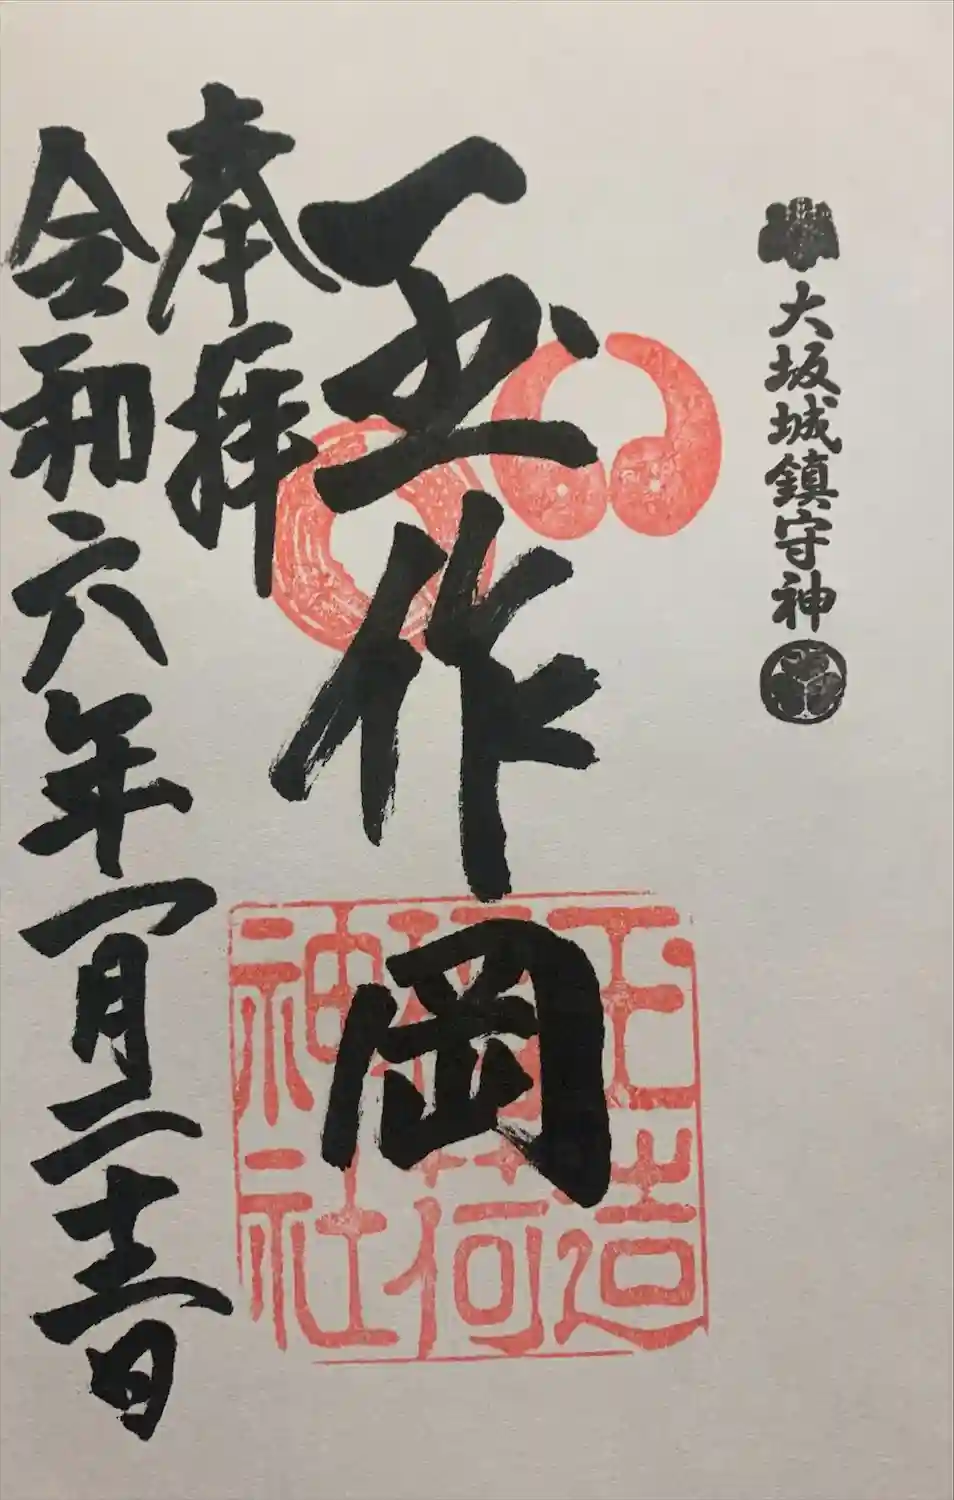 大坂城鎮守神
玉作岡
玉造
稲荷
神社
奉拝
令和六年一月二十五日